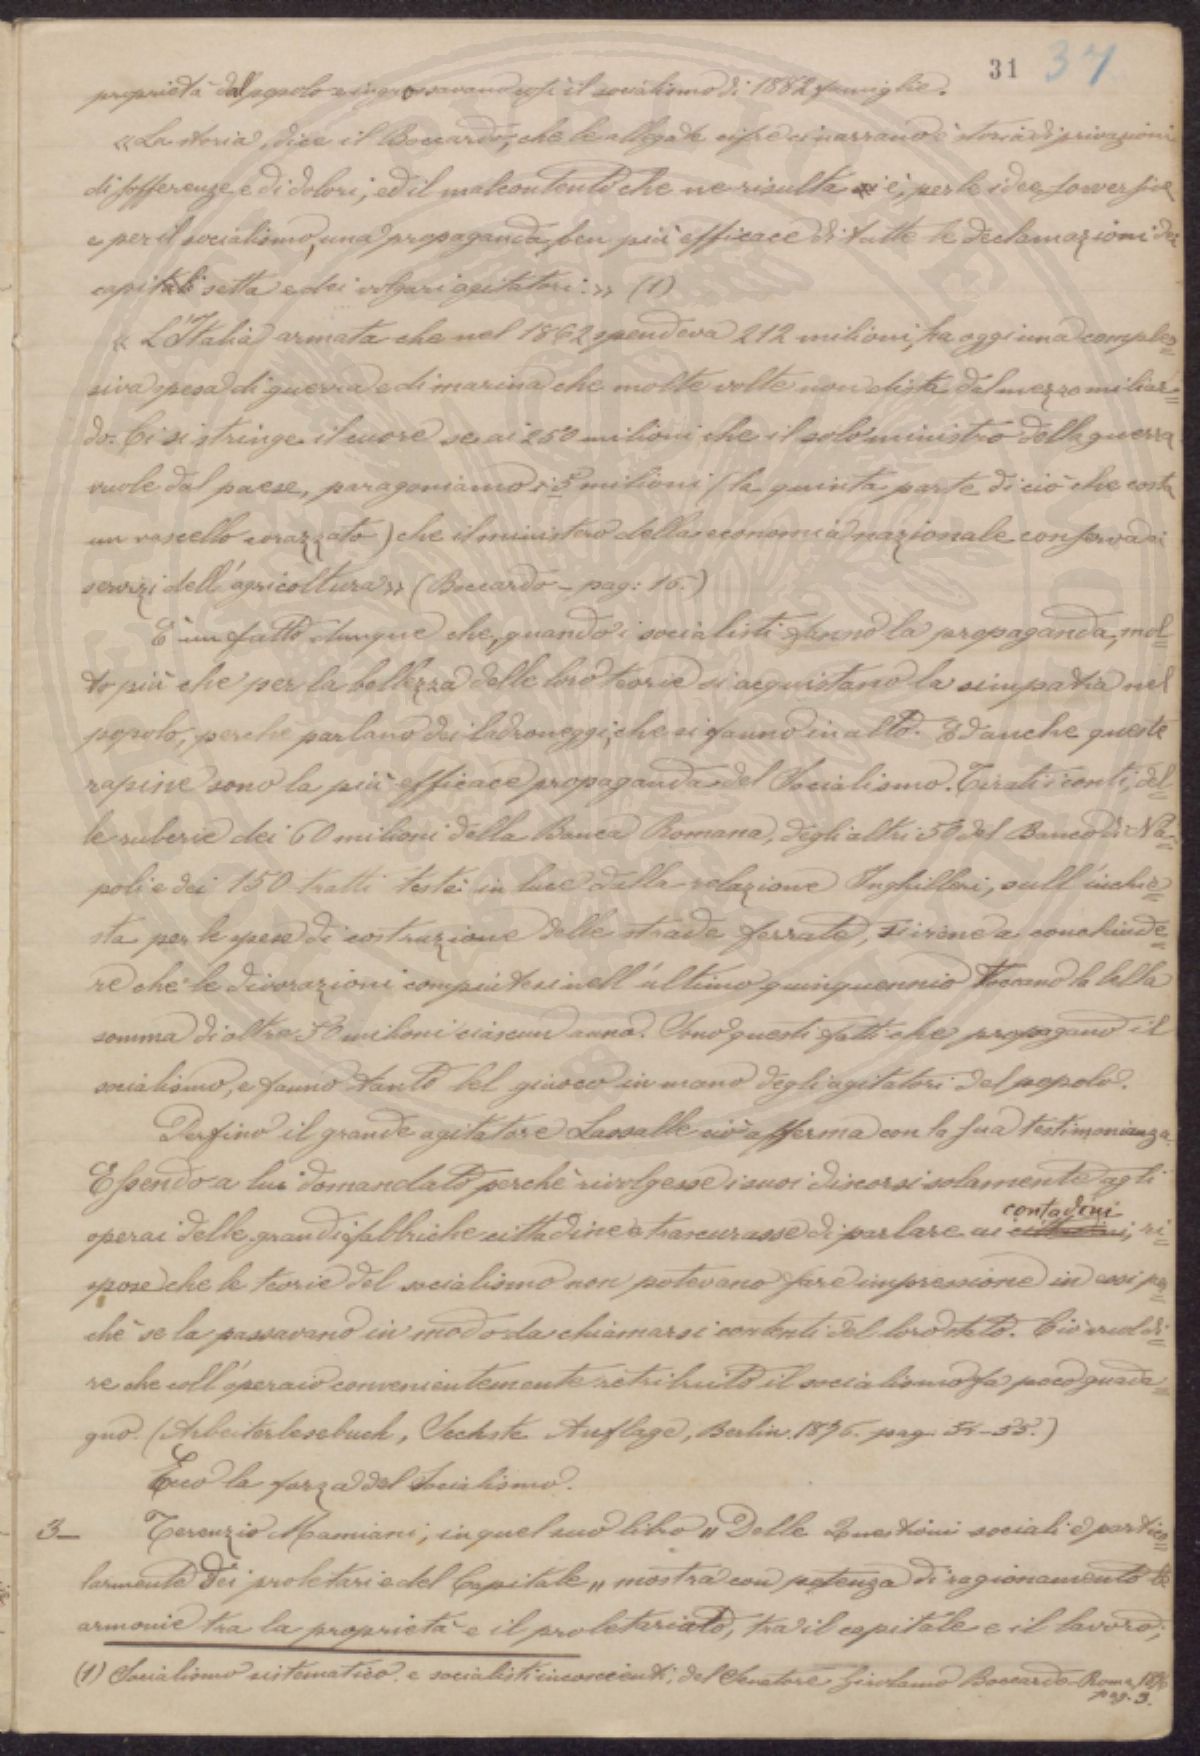 31 37
proprietà dal popolo e ingrossavano così il socialismo di 1882 famiglie.
«La storia, dice il Boccardo, che le allegate cifre ci narrano è storia di privazioni
di sofferenze e di dolori, ed il malcontento che ne risulta è, per le idee sovversive
e per il socialismo, una propaganda ben più efficace di tutte le declamazioni dei
capi setta e dei volgari agitatori.» (1)
« L'Italia armata che nel 1862 spendeva 212 milioni, ha oggi una comples=
siva spesa di guerra e di marina che molte volte non dista dal mezzo miliar=
do. Ci si stringe il cuore se ai 250 milioni che il solo ministro della guerra
vuole dal paese, paragoniamo i 5 milioni (la quinta parte di ciò che costa
un vascello corazzato) che il ministero della economia nazionale conserva ai
servizi dell'agricoltura» (Boccardo - pag: 16.)
È un fatto dunque che, quando i socialisti fanno la propaganda, mol=
to più che per la bellezza delle loro teorie si acquistano la simpatia nel
popolo, perchè parlano dei ladroneggi, che si fanno in alto. Ed anche queste
rapine sono la più efficace propaganda del Socialismo. Tirati i conti, del=
le ruberie dei 60 milioni della Banca Romana, degli altri 50 del Banco di Na=
poli e dei 150 tratti testè in luce dalla relazione Inghilleri, sull'inchie=
sta per le spese di costruzione delle strade ferrate, si viene a conchiude=
re che le divorazioni compiutesi nell'ultimo quinquennio toccano la bella
somma di oltre 50 milioni ciascun anno. Sono questi fatti che propagano il
socialismo, e fanno tanto bel giuoco in mano degli agitatori del popolo.
Perfino il grande agitatore Lassalle ciò afferma con la sua testimonianza.
Essendo a lui domandato perchè rivolgesse i suoi discorsi solamente agli
operai delle grandi fabbriche cittadine e trascurasse di parlare ai contadini, ri=
spose che le teorie del socialismo non potevano fare impressione in essi per=
chè se la passavano in modo da chiamarsi contenti del loro stato. Ciò vuol di=
re che coll'operaio convenientemente retribuito il socialismo fa poco guada=
gno. (Arbeiterlesebuch, Sechste Auflage, Berlin. 1876. pag.
Ecco la forza del Socialismo.
3- Terenzio Mamiani, in quel suo libro „ Delle Questioni sociali e partico=
larmente dei proletari e del Capitale „ mostra con potenza di ragionamento le
armonie tra la proprietà e il proletariato, tra il capitale e il lavoro;
(1) Socialismo sistematico e socialisti incoscienti, del Senatore Girolamo Boccardo - Roma,
pag. 3.